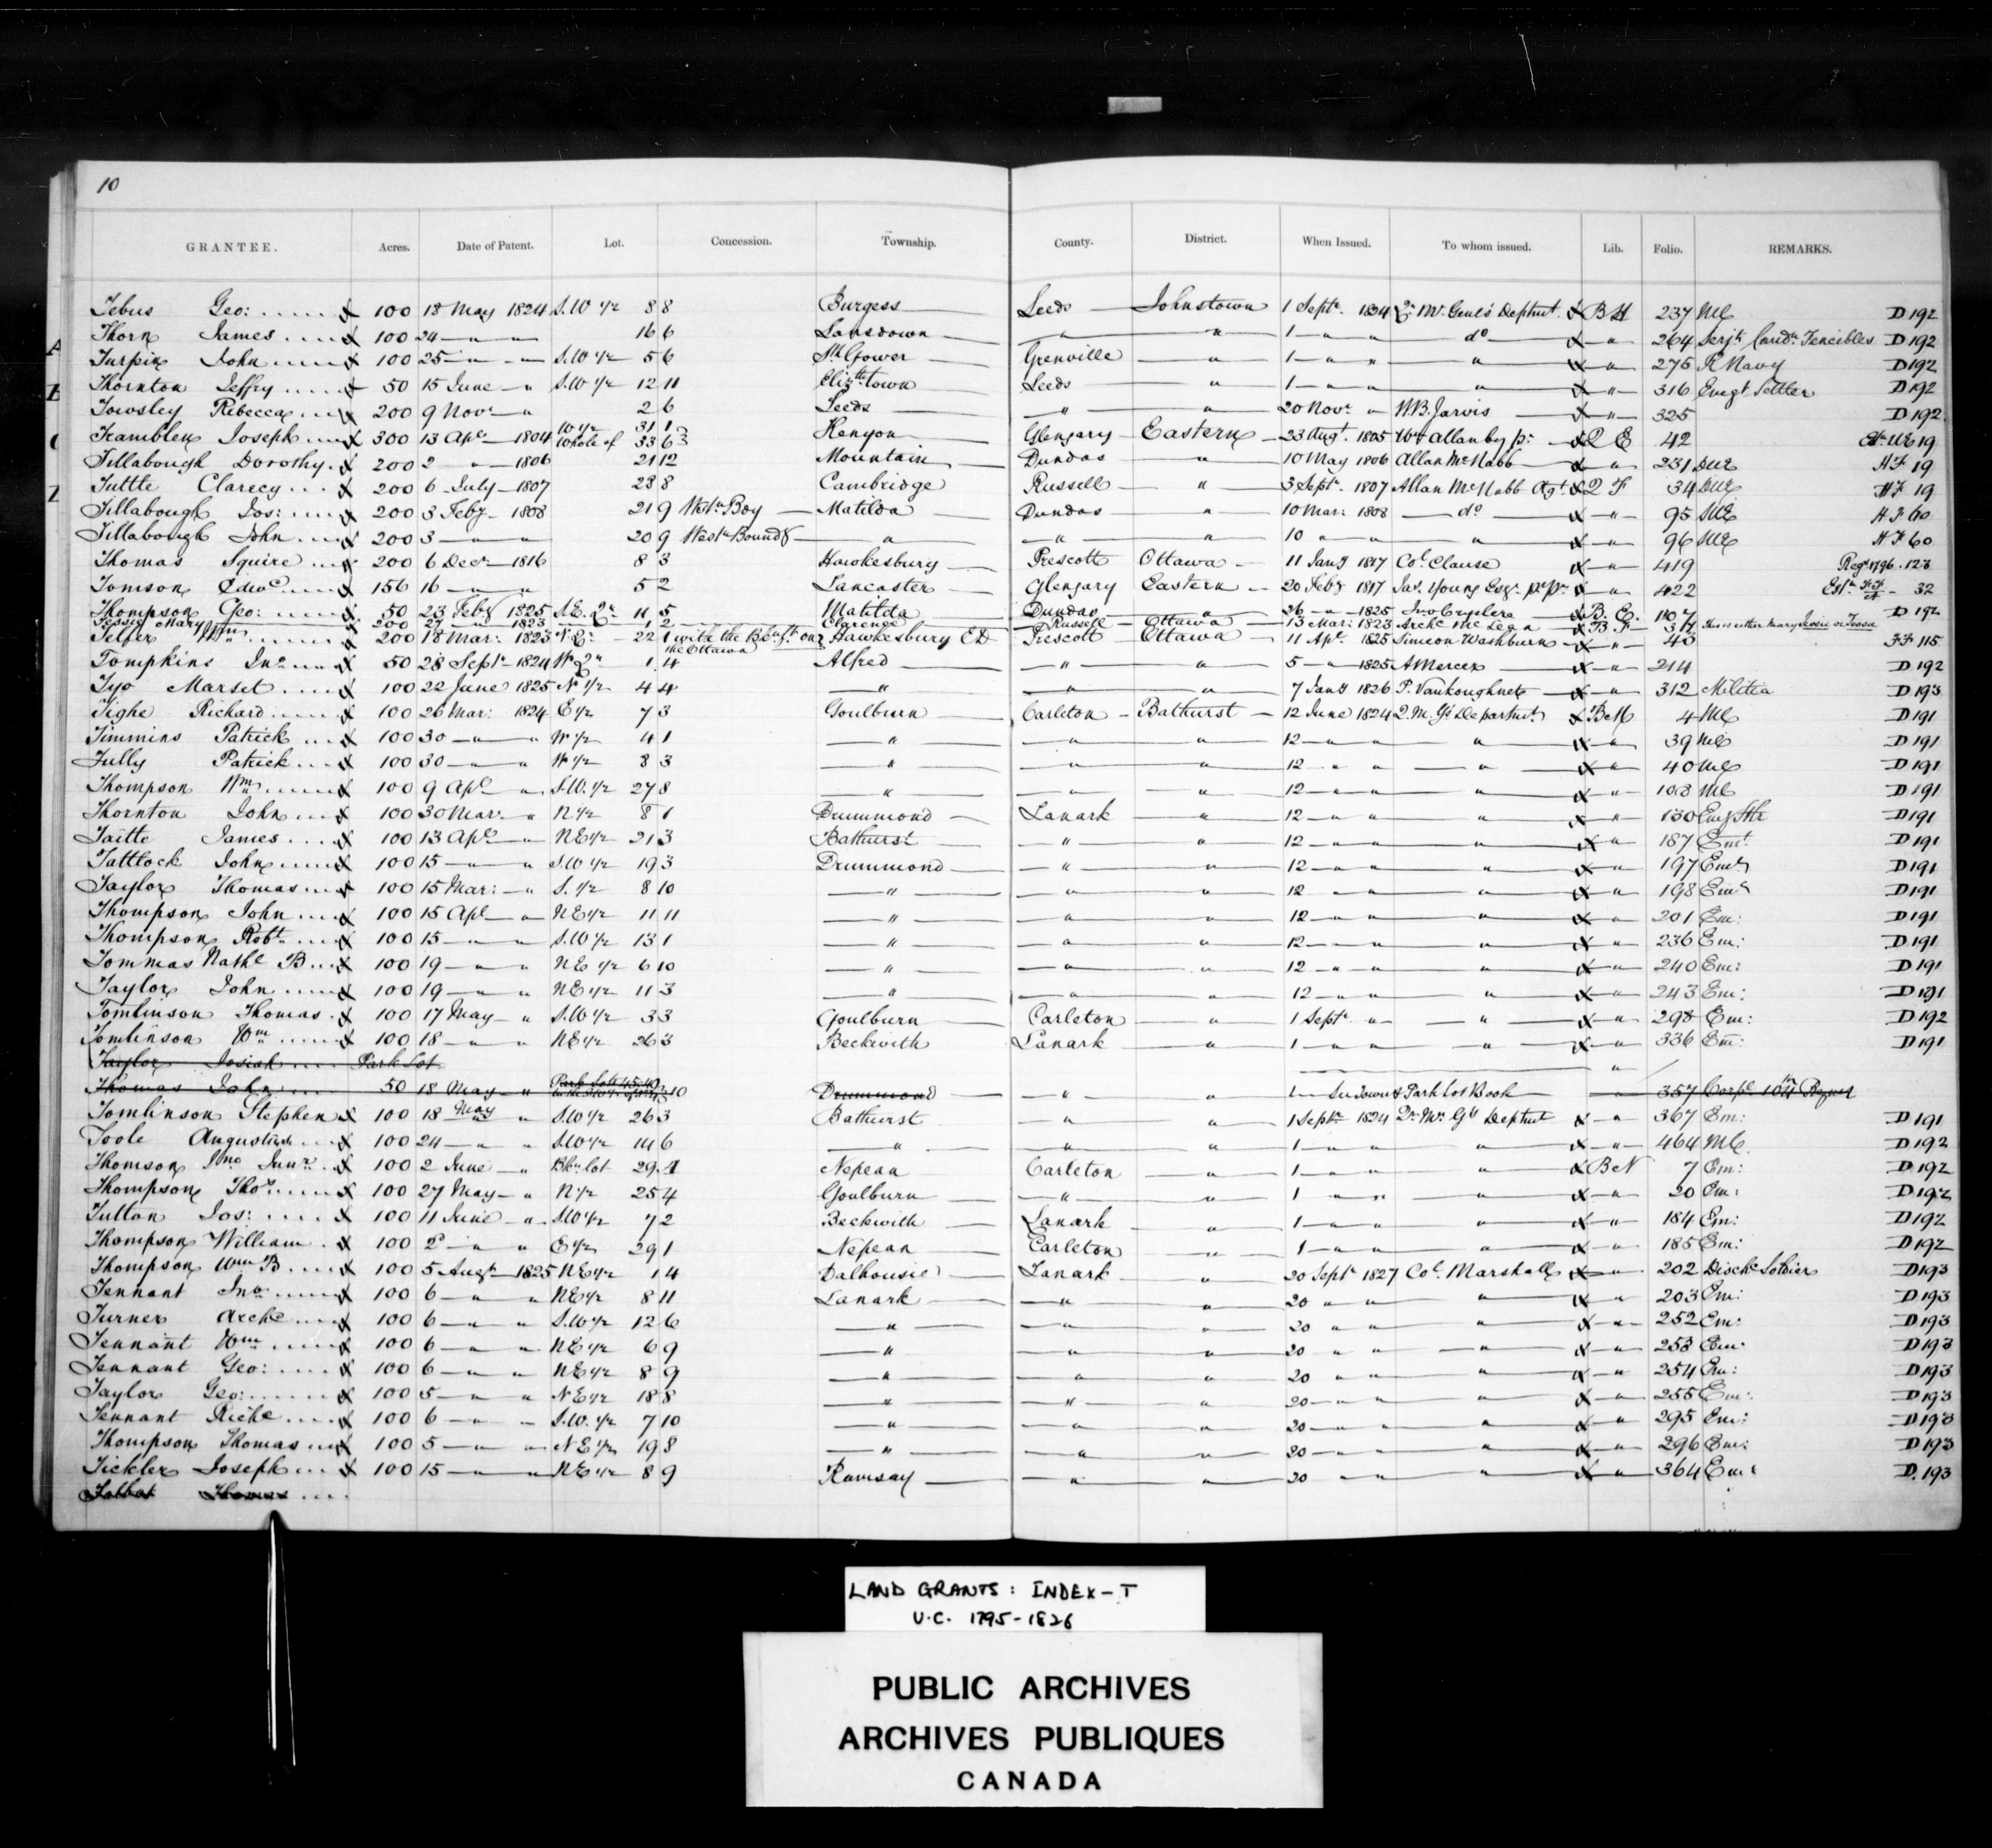 10
GRANTEE. Acres. Date of Patent. Lot. Concession. Township. County. District. When Issued. To whom issued. Lib. Folio. REMARKS.
Tebus Geo: ..... x 100 18 May 1824 S.W 1/2 8 8 Burgess Leeds Johnstown 1 Septr. 1824 Qr. Mr. Genl's Deptmt. x B M 237 MC D 192
Thorn James .... x 100 24 " " 16 6 Lansdown " " 1 " " do x " 264 Serjt. Candn. Fencibles D 192
Turpin John .... x 100 25 " " S.W 1/2 5 6 Sth Gower Grenville " 1 " " " x " 275 R Navy D 192
Thornton Jeffry ..... x 50 15 June " S.W 1/2 12 11 Elizth.town Leeds " 1 " " " x " 316 Emigt Settler D 192
Towsley Rebecca ... x 200 9 Novr " 2 6 Leeds " " 20 Novr " W.B. Jarvis x " 325 D 192
Tramblen Joseph ... x 300 13 Apl. 1804 W 1/2 31 1 Whole of 33 6 Kenyon Glengary Eastern 23 Augt. 1805 Wm Allan by pr. x Q E 42 19
Tillabough Dorothy. x 200 2 " 1806 21 12 Mountain Dundas " 10 May 1806 Allan McNabb x " 231 DUE HF 19
Tuttle Clarecy ... x 200 6 July 1807 28 8 Cambridge Russell " 3 Septr. 1807 Allan McNabb Agt. x Q F 34 DUE HF 19
Tillabough Jos: ... x 200 3 Feby 1808 21 9 Westn Boy Matilda Dundas " 10 Mar: 1808 do x " 95 SUE HF 60
Tillabough John ... x 200 3 " " 20 9 Westn Boundy " " " 10 " " " x " 96 SUE HF 60
Thomas Squire ... x 200 6 Decr 1816 8 3 Hawkesbury Prescott Ottawa 11 Jany 1817 Col. Clause x " 419 Regr 1796. 123
Tomson Edwd .... x 156 16 " " 5 2 Lancaster Glengary Eastern 20 Feby 1817 Jas. Young Esqr. pr pr x " 422 32
Thompson Geo: ..... x 50 23 Feby 1825 N.E. Qr 11 5 Matilda Dundas " 26 " 1825 Jno Crysler x B. E. 107 D 192
Tessie Mary x 200 27 " 1823 1 2 Clarence Russell Ottawa 13 Mar: 1823 Archd McLean x B F 37 other Mary Tessie or Tossa
Telfer Wm ...... x 200 18 Mar: 1825 N.E: 22 1 with the Bn.ft. on the Ottawa Hawkesbury ED Prescott Ottawa 11 Apl. 1825 Simeon Washburn x " 43 FF 115
Tompkins Jno .... x 50 28 Septr 1824 W. Qr 1 4 Alfred " " 5 " 1825 A Mercer x " 214 D 192
Tyo Marset ..... x 100 22 June 1825 N 1/2 4 4 " " " 7 Jany 1826 P. Vankoughnet x " 312 Militia D 193
Tighe Richard ...... x 100 26 Mar: 1824 E 1/2 7 3 Goulburn Carleton Bathurst 12 June 1824 Q. M. G's Departmt. x B M 4 MC D 191
Timmins Patrick ... x 100 30 " " W 1/2 4 1 " " " 12 " " " x " 39 MC D 191
Tully Patrick .... x 100 30 " " W 1/2 8 3 " " " 12 " " " x " 40 MC D 191
Thompson Wm ...... x 100 9 Apl " S.W. 1/2 27 8 " " " 12 " " " x " 103 MC D 191
Thornton John ... x 100 30 Mar: " N 1/2 8 1 Drummond Lanark " 12 " " " x " 130 D 191
Taitte James .... x 100 13 Apl " N E 1/2 21 3 Bathurst " " 12 " " " x " 187 Emt. D 191
Tattlock John ..... x 100 15 " " S.W 1/2 19 3 Drummond " " 12 " " " x " 197 Emt. D 191
Taylor Thomas ... x 100 15 Mar: " S. 1/2 8 10 " " " 12 " " " x " 198 Emt. D 191
Thompson John .... x 100 15 Apl " N E 1/2 11 11 " " " 12 " " " x " 201 Em: D 191
Thompson Robt ... x 100 15 " " S.W 1/2 13 1 " " " 12 " " " x " 236 Em: D 191
Tommas Nathl B ... x 100 19 " " N E 1/2 6 10 " " " 12 " " " x " 240 Em: D 191
Taylor John ...... x 100 19 " " N E 1/2 11 3 " " " 12 " " " x " 243 Em: D 191
Tomlinson Thomas . x 100 17 May " S.W 1/2 3 3 Goulburn Carleton " 1 Septr. " " x " 298 Em: D 192
Tomlinson Wm ...... x 100 18 " " N E 1/2 26 3 Beckwith Lanark " 1 " " " x " 336 Em: D 191
Taylor Josiah .... Park Lot "
Thomas John .... 50 18 May " Park Lots 10 Drummond " " 1 See Town & Park Lot Book " 357 Corpl. 104th Regmt
Tomlinson Stephen x 100 18 May " S.W 1/2 26 3 Bathurst " " 1 Septr 1824 Qr. Mr. Gl's Deptmt x " 367 Em: D 191
Toole Augustush ... x 100 24 " " S.W 1/2 14 6 " " " 1 " " " x " 464 MC. D 192
Thomson Jno Junr. . x 100 2 June " Bkn lot 29 A Nepean Carleton " 1 " " " x B N 7 Em: D 192
Thompson Thos ...... x 100 27 May " N 1/2 25 4 Goulburn " " 1 " " " x " 20 Em: D 192
Tutton Jos: .... x 100 11 June " S.W 1/2 7 2 Beckwith Lanark " 1 " " " x " 184 Em: D 192
Thompson William . x 100 2 " " E 1/2 29 1 Nepean Carleton " 1 " " " x " 185 Em: D 192
Thompson Wm B .... x 100 5 Augt 1825 N E 1/2 1 4 Dalhousie Lanark " 20 Septr 1827 Col. Marshall x " 202 Dischd Soldier D 193
Tennant Jno ...... x 100 6 " " N E 1/2 8 11 Lanark " " 20 " " " x " 203 Em: D 193
Turner Archd .... x 100 6 " " S.W 1/2 12 6 " " " 20 " " " x " 252 Em: D 193
Tennant Wm ..... x 100 6 " " N E 1/2 6 9 " " " 20 " " " x " 253 Em: D 193
Tennant Geo: ..... x 100 6 " " N E 1/2 8 9 " " " 20 " " " x " 254 Em: D 193
Taylor Geo: ...... x 100 5 " " N E 1/2 18 8 " " " 20 " " " x " 255 Em: D 193
Tennant Richd .... x 100 6 " " S.W. 1/2 7 10 " " " 20 " " " x " 295 Em: D 193
Thompson Thomas ... x 100 5 " " N E 1/2 19 8 " " " 20 " " " x " 296 Em: D 193
Tickler Joseph ... x 100 15 " " N E 1/2 8 9 Ramsay " " 20 " " " x " 364 Em: D. 193
Talbot Thomas ....
LAND GRANTS: INDEX-T
U.C. 1795-1826
PUBLIC ARCHIVES
ARCHIVES PUBLIQUES
CANADA